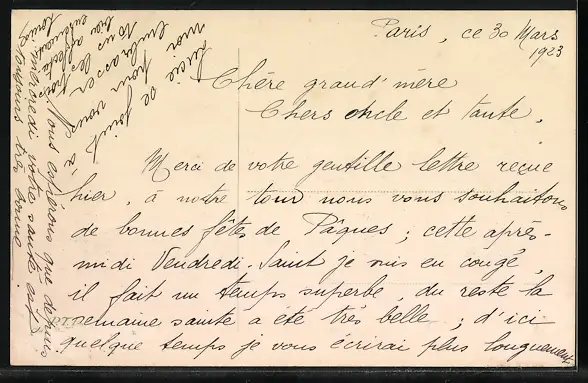 Paris, ce 30 Mars
1923
Chère grand'mère
Chers oncle et tante,
Merci de votre gentille lettre reçue
hier, à notre tour nous vous souhaitons
de bonnes fêtes de Pâques ; cette après-
midi Vendredi-Saint je suis en congé,
il fait un temps superbe, du reste la
semaine sainte a été très belle ; d'ici
quelque temps je vous écrirai plus longuement
Nous espérons que depuis
mercredi votre santé est
toujours très bonne.
Lucie se joint à
moi pour vous
embrasser tous
bien
Louise